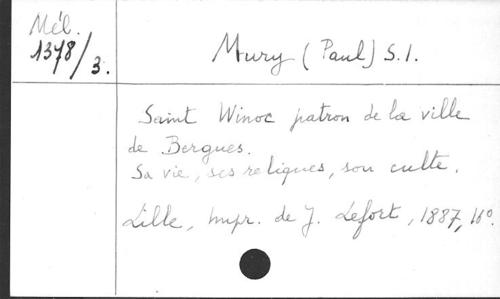 Mél.
1378/3.
Mury (Paul) S.I.
Saint Winoc patron de la ville
de Bergues.
Sa vie, ses reliques, son culte.
Lille, Impr. de J. Lefort, 1887, 16°.